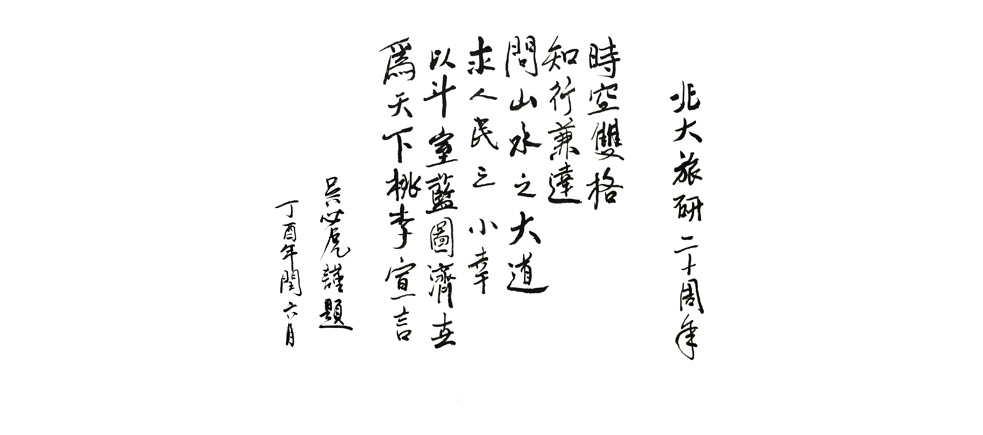 北大旅研二十周年
時空雙格
知行兼達
問山水之大道
求人民之小幸
以斗室藍圖濟世
為天下桃李宣言
吳必虎謹題
丁酉年閏六月